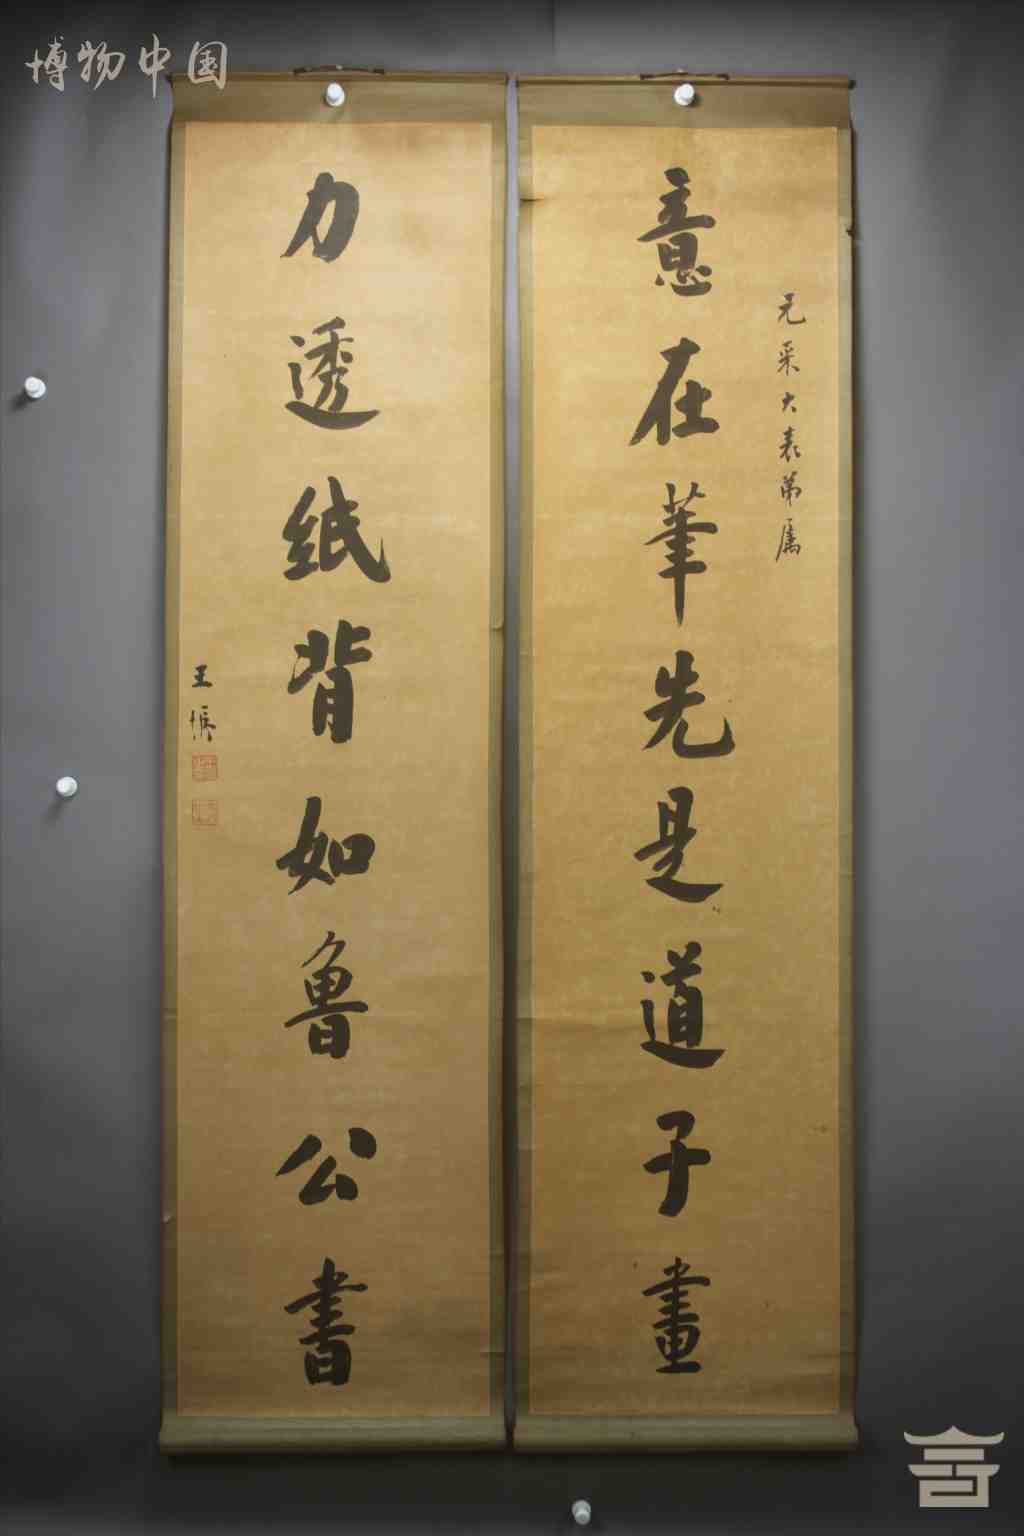 博物中国
元采大表弟属
意在筆先是道子畫
力透纸背如魯公書
王